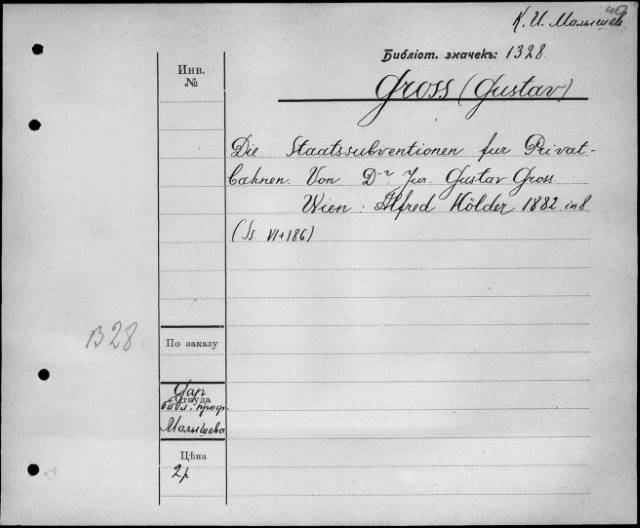 К. И. Малышев
Библіот. значекъ: 1328
Инв.
№
Gross (Gustav)
Die Staatssubventionen fur Privat-
bahnen. Von Dr Jur. Gustav Gross
Wien. Alfred Hölder 1882 in 8
(Ss VI+186)
B 28.
По заказу
Дар
Откуда
библ. проф.
Малышева
Цѣна
2р